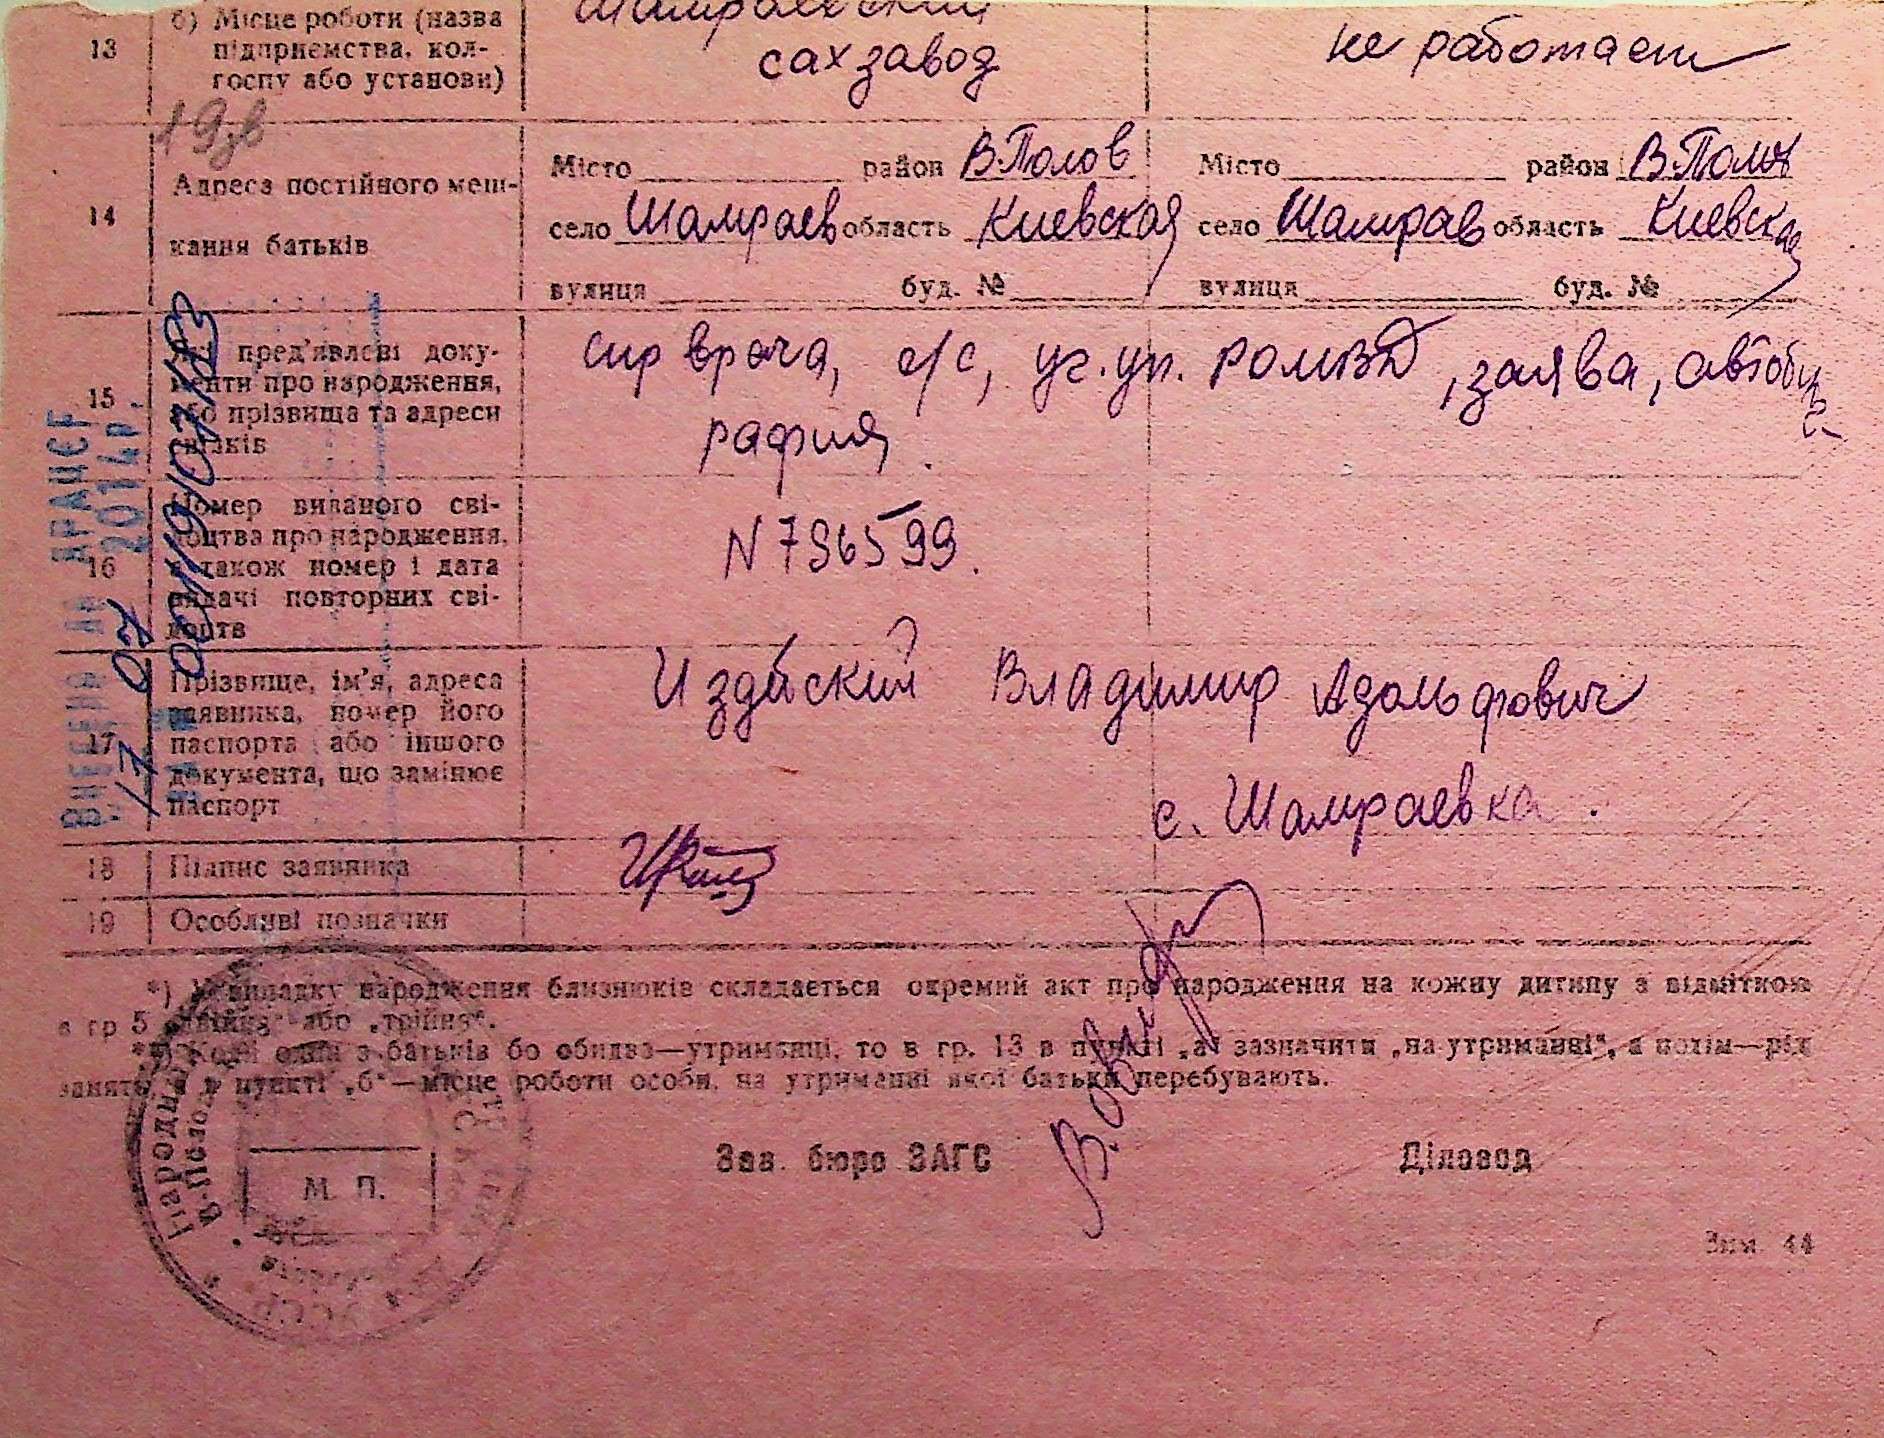 13 б) Місце роботи (назва підприємства, кол-госпу або установи) Шамраевский сахзавод не работает
19
14 Адреса постійного меш-кання батьків
Місто район В.Полов Місто район
село Шамраев область Киевская село Шамрав область Киевская
вулиця буд. № вулиця буд. №
15 пред'явлені доку-менти про народження, або прізвища та адреси свідків
врача, с/с, заява, автобиог-
рафия.
16 Номер виданого сві-доцтва про народження, а також номер і дата видачі повторних сві-доцтв
N 796599.
17 Прізвище, ім'я, адреса заявника, номер його паспорта або іншого документа, що замінює паспорт
Владимир Адольфович
с. Шамраевка.
18 Підпис заявника
19 Особливі позначки
ВНЕСЕНО ДО ДРАЦСГ
17 07 2014р.
*) У випадку народження близнюків складається окремий акт про народження на кожну дитину з відміткою
в гр 5 „двійня" або „трійня".
**) Коли один з батьків бо обидва—утриманці, то в гр. 13 в пункті „а" зазначити „на утриманні", а потім—рід
занять, а в пункті „б"—місце роботи особи, на утриманні якої батьки перебувають.
М. П.
Зав. бюро ЗАГС Діловод
Зам. 44